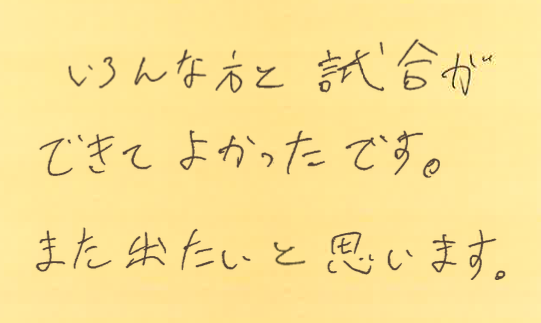 いろんな方と試合が
できてよかったです。
また出たいと思います。